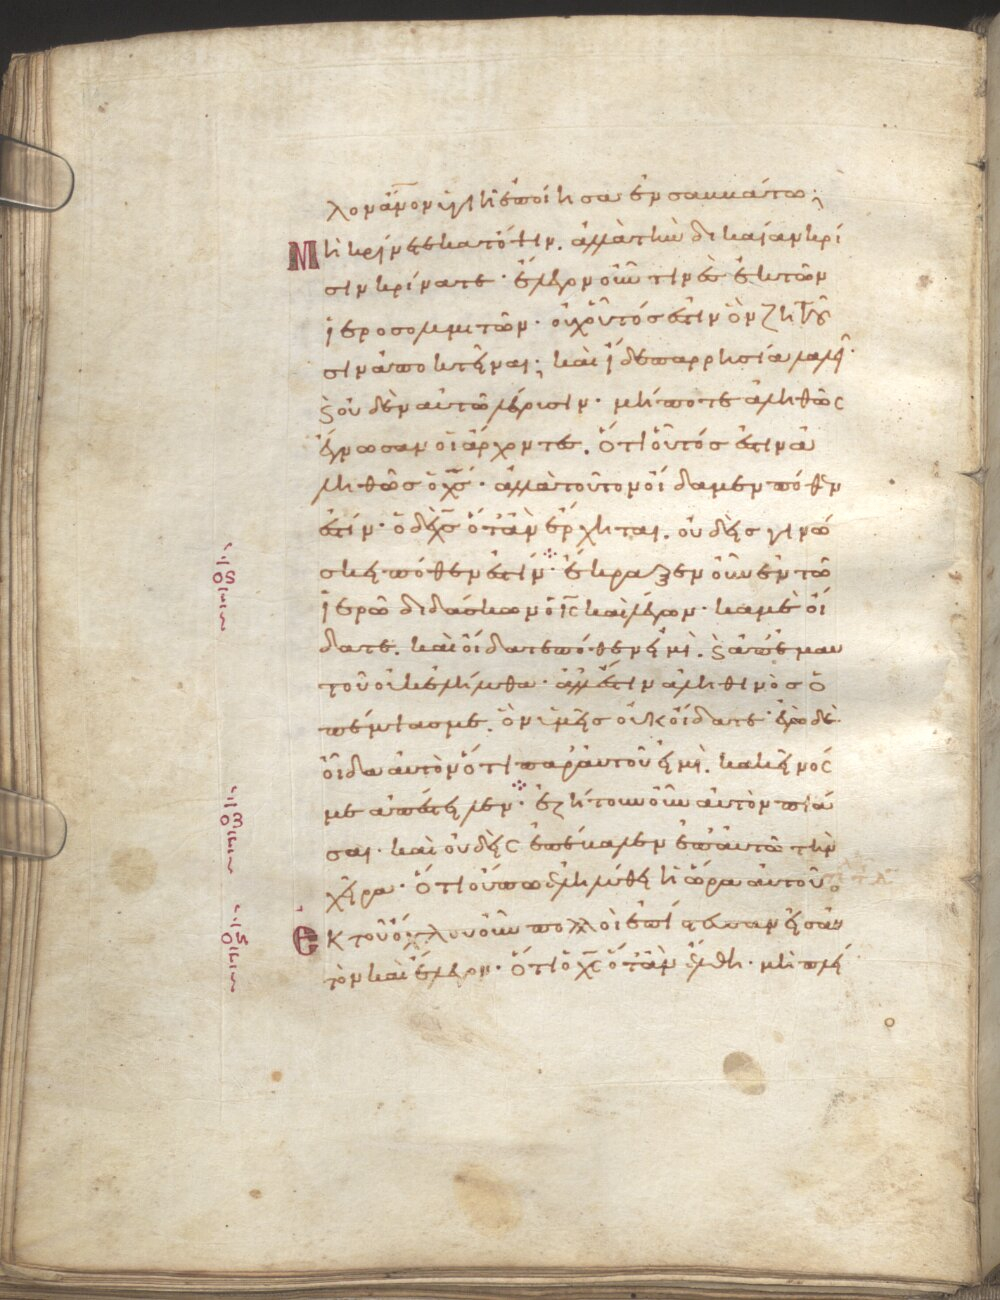 λον ἄνον ὑγιῆ ἐποίησα ἐν σαββάτω;
Μὴ κρίνετε κατ' ὄψιν. ἀλλὰ τὴν δικαίαν κρί
σιν κρίνατε· ἔλεγον οὖν τινὲς ἐκ τῶν
ἱεροσολυμιτῶν· οὐχ οὗτός ἐστιν ὃν ζητοῦ
σιν ἀποκτεῖναι; καὶ ἴδε παρρησία λαλεῖ·
ϗ οὐδὲν αὐτῶ λέγουσιν· μήποτε ἀληθῶς
ἔγνωσαν οἱ ἄρχοντες. ὅτι οὗτός ἐστιν ἀ
ληθῶς ὁ χς· ἀλλὰ τοῦτον οἴδαμεν πόθεν
ἐστίν· ὁ δὲ χς ὅταν ἔρχηται. οὐδεὶς γινώ
σκει πόθεν ἐστίν· ἔκραξεν οὖν ἐν τῶ
ἱερῶ διδάσκων ὁ ις καὶ λέγων· καμὲ οἴ
δατε. καὶ οἴδατε πόθεν εἰμὶ. ϗ ἀπ' ἐμαυ
τοῦ οὐκ ἐλήλυθα· ἀλλ' ἔστιν ἀληθινὸς ὁ
πέμψας με. ὃν ὑμεῖς οὐκ οἴδατε· ἐγὼ δὲ
οἶδα αὐτὸν ὅτι παρ' αὐτοῦ εἰμὶ. κακεῖνός
με ἀπέστειλεν· ἐζήτουν οὖν αὐτὸν πιά
σαι· καὶ οὐδεὶς ἐπέβαλεν ἐπ' αὐτῶ τὴν
χεῖρα· ὅτι οὔπω ἐληλύθει ἡ ὥρα αὐτοῦ·
Ἐκ τοῦ ὄχλου οὖν πολλοὶ ἐπίστευσαν εἰς αὐ
τὸν καὶ ἔλεγον· ὅτι ὁ χς ὅταν ἔλθη· μὴ πλεί